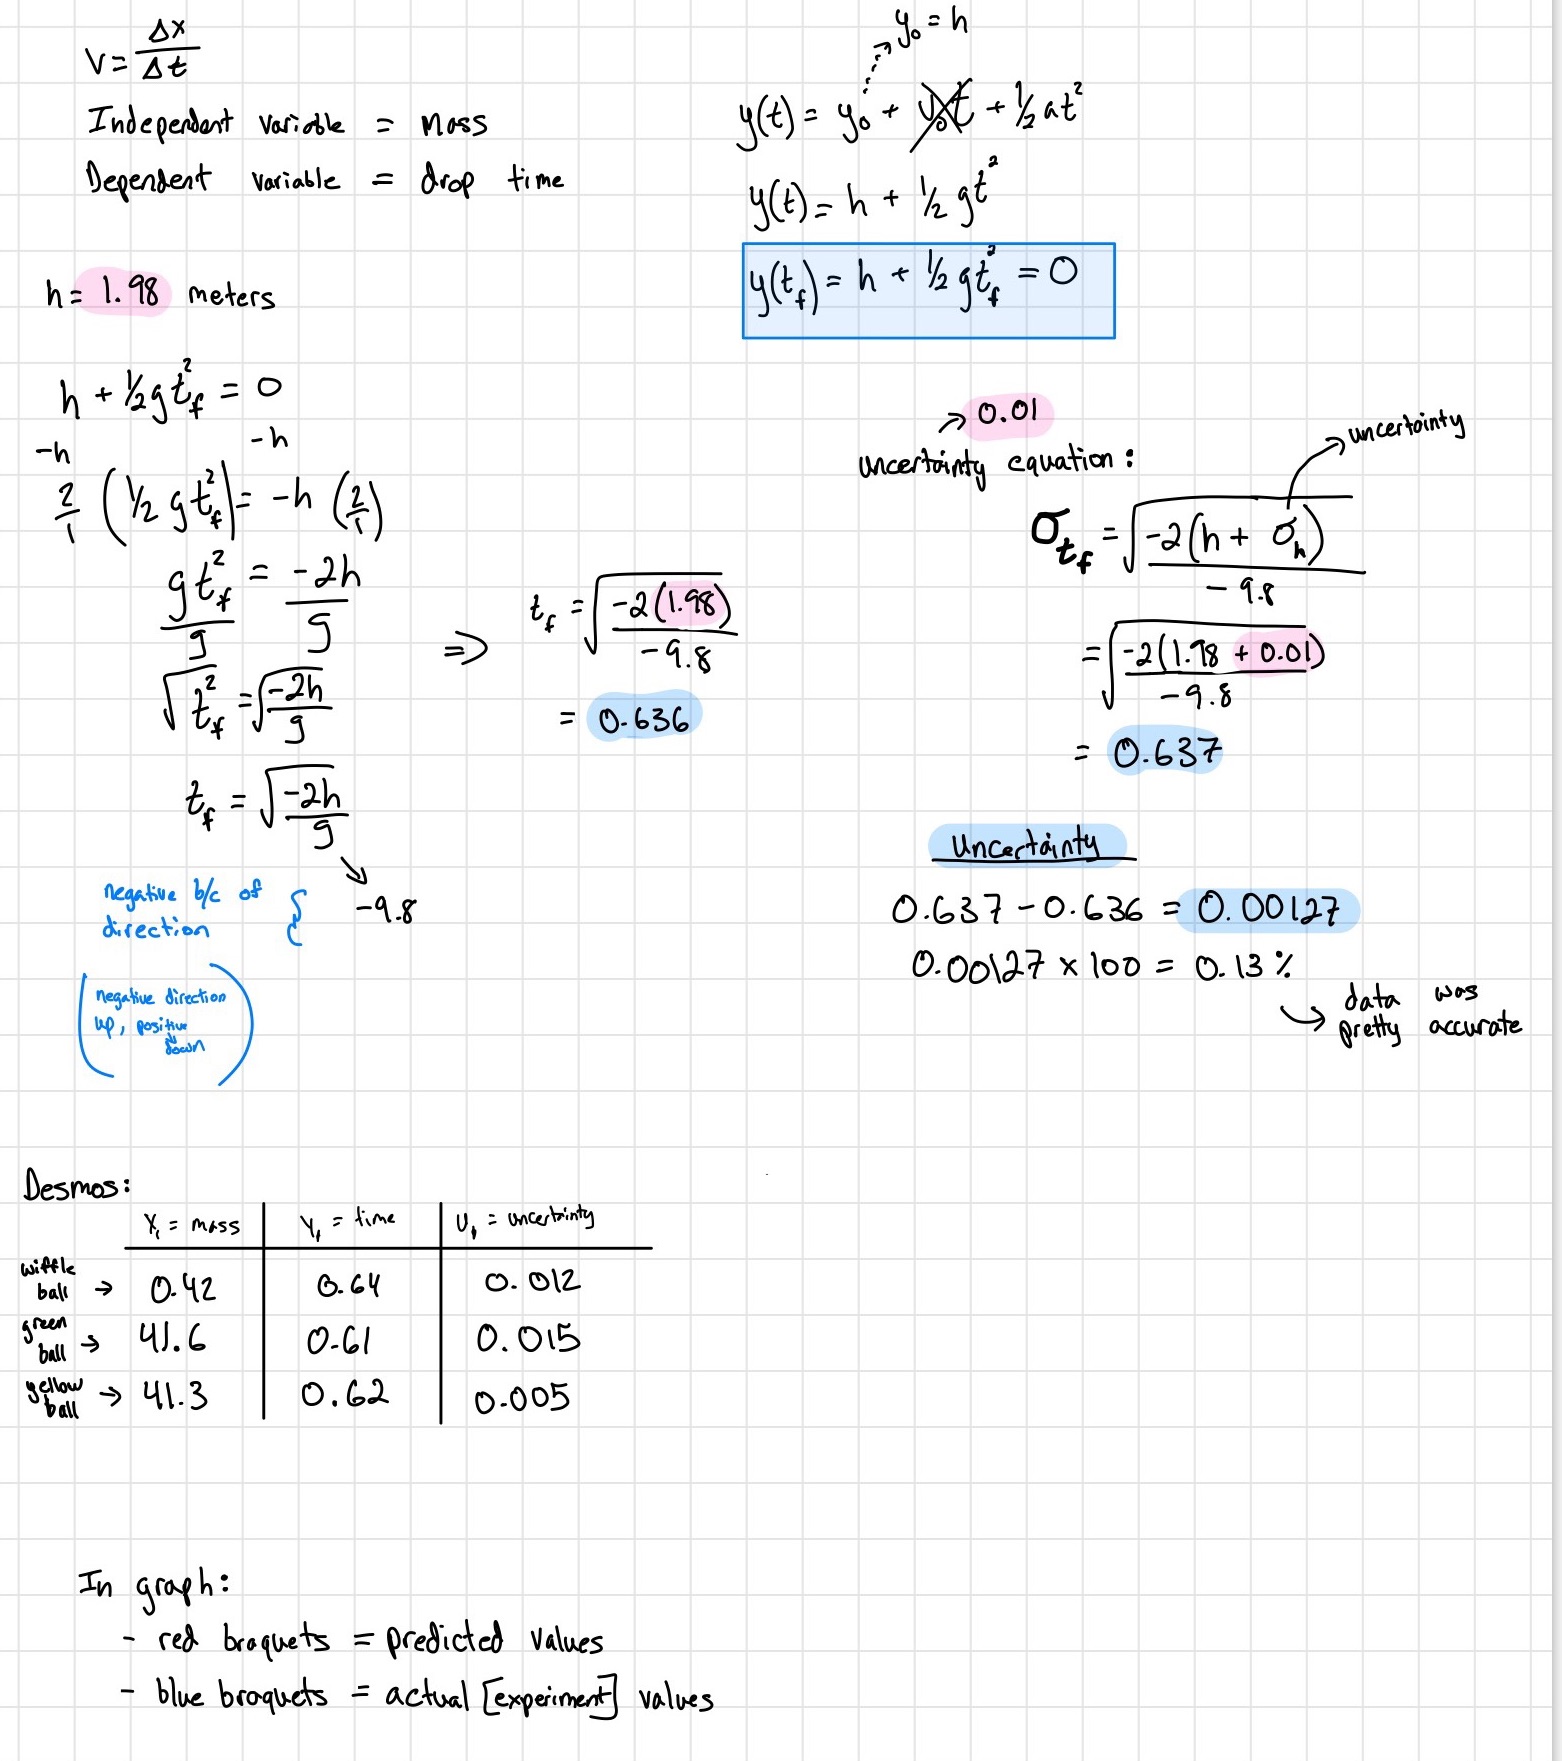 v = Δx/Δt
Independent variable = mass
Dependent variable = drop time
h = 1.98 meters
y₀ = h
y(t) = y₀ + v₀t + ½at²
y(t) = h + ½gt²
y(t_f) = h + ½gt_f² = 0
h + ½gt_f² = 0
-h -h
2/1 (½gt_f²) = -h (2/1)
gt_f²/g = -2h/g
√t_f² = √(-2h/g)
t_f = √(-2h/g)
-9.8
negative b/c of
direction
(negative direction
up, positive
down)
⇒ t_f = √(-2(1.98)/-9.8)
= 0.636
→ 0.01
uncertainty equation:
→ uncertainty
σ_t_f = √(-2(h + σ_h)/-9.8)
= √(-2(1.98 + 0.01)/-9.8)
= 0.637
Uncertainty
0.637 - 0.636 = 0.00127
0.00127 x 100 = 0.13%
→ data was
pretty accurate
Desmos:
X₁ = mass Y₁ = time U₁ = uncertainty
wiffle ball → 0.42 0.64 0.012
green ball → 41.6 0.61 0.015
yellow ball → 41.3 0.62 0.005
In graph:
- red braquets = predicted values
- blue braquets = actual [experiment] values